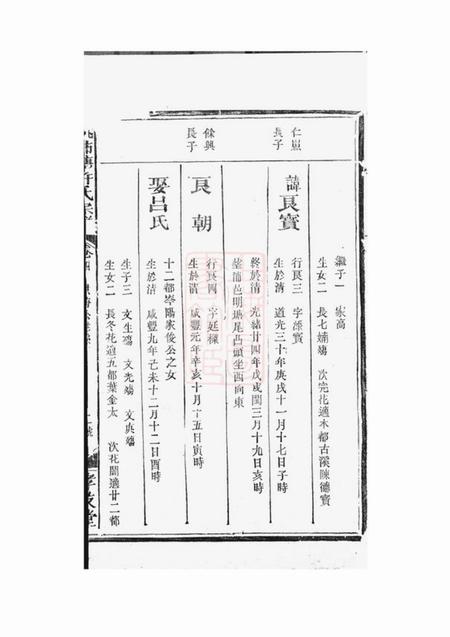 繼子一 家高
生女二 長七 殤 次完花適木都古溪陳德寶
仁熙長子
諱良寶
行良三 字添寶
生於清 道光三十年庚戌十一月十七日子時
終於清 光緒廿四年戊戌閏三月十九日亥時
塟浦邑明塘尾凸頭坐西向東
餘興長子
良朝
行良四 字廷樑
生於清 咸豐元年辛亥十月十五日寅時
娶呂氏
十二都岑陽家俊公之女
生於清 咸豐九年己未十二月十二日酉時
生子三 文生殤 文光殤 文典殤
生女二 長冬花適五都葉金太 次花閨適廿二都
卷四
孝友堂